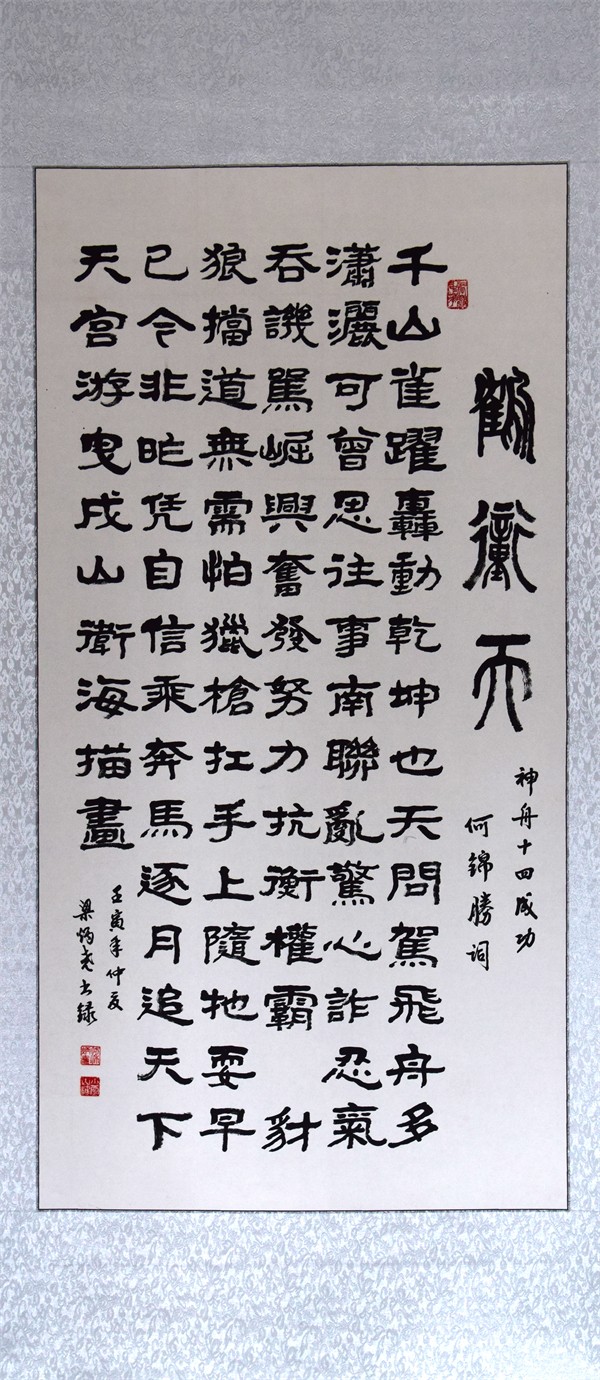 鶴衝天
神舟十四成功
何錦勝詞
千山雀躍轟動乾坤也天問駕飛舟多
瀟灑可曾思往事南聯亂驚心詐忍氣
吞譏罵崛興奮發努力抗衡權霸 豺
狼擋道無需怕獵槍扛手上隨牠耍早
已今非昨凭自信乘奔馬逐月追天下
天宮游曳戍山衛海描畫
壬寅年仲夏
梁炳尧书録